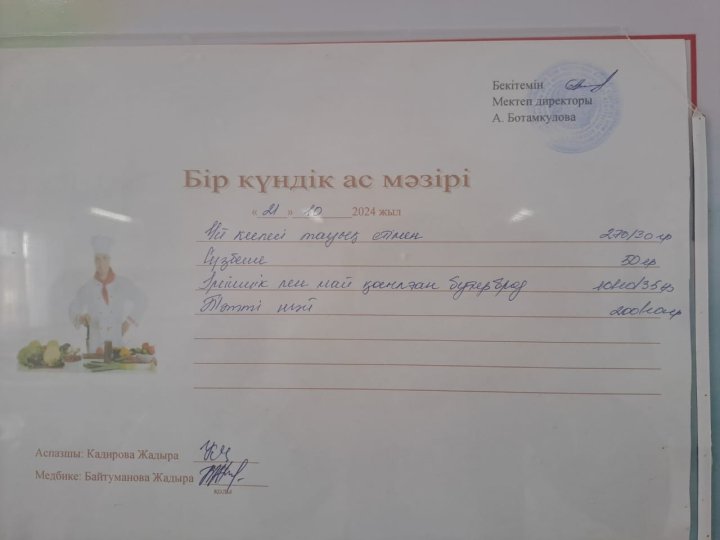 Бекітемін
Мектеп директоры
А. Ботамкулова
Бір күндік ас мәзірі
« 21 » 10 2024 жыл
Үй кеспей тауық етімен 270/30 гр
Сүзбеше 50 гр
Ірімшік пен май қосылған бутерброд 10/10/35 гр
Тәтті шәй 200/10 гр
Аспазшы: Кадирова Жадыра
Медбике: Байтуманова Жадыра
қолы